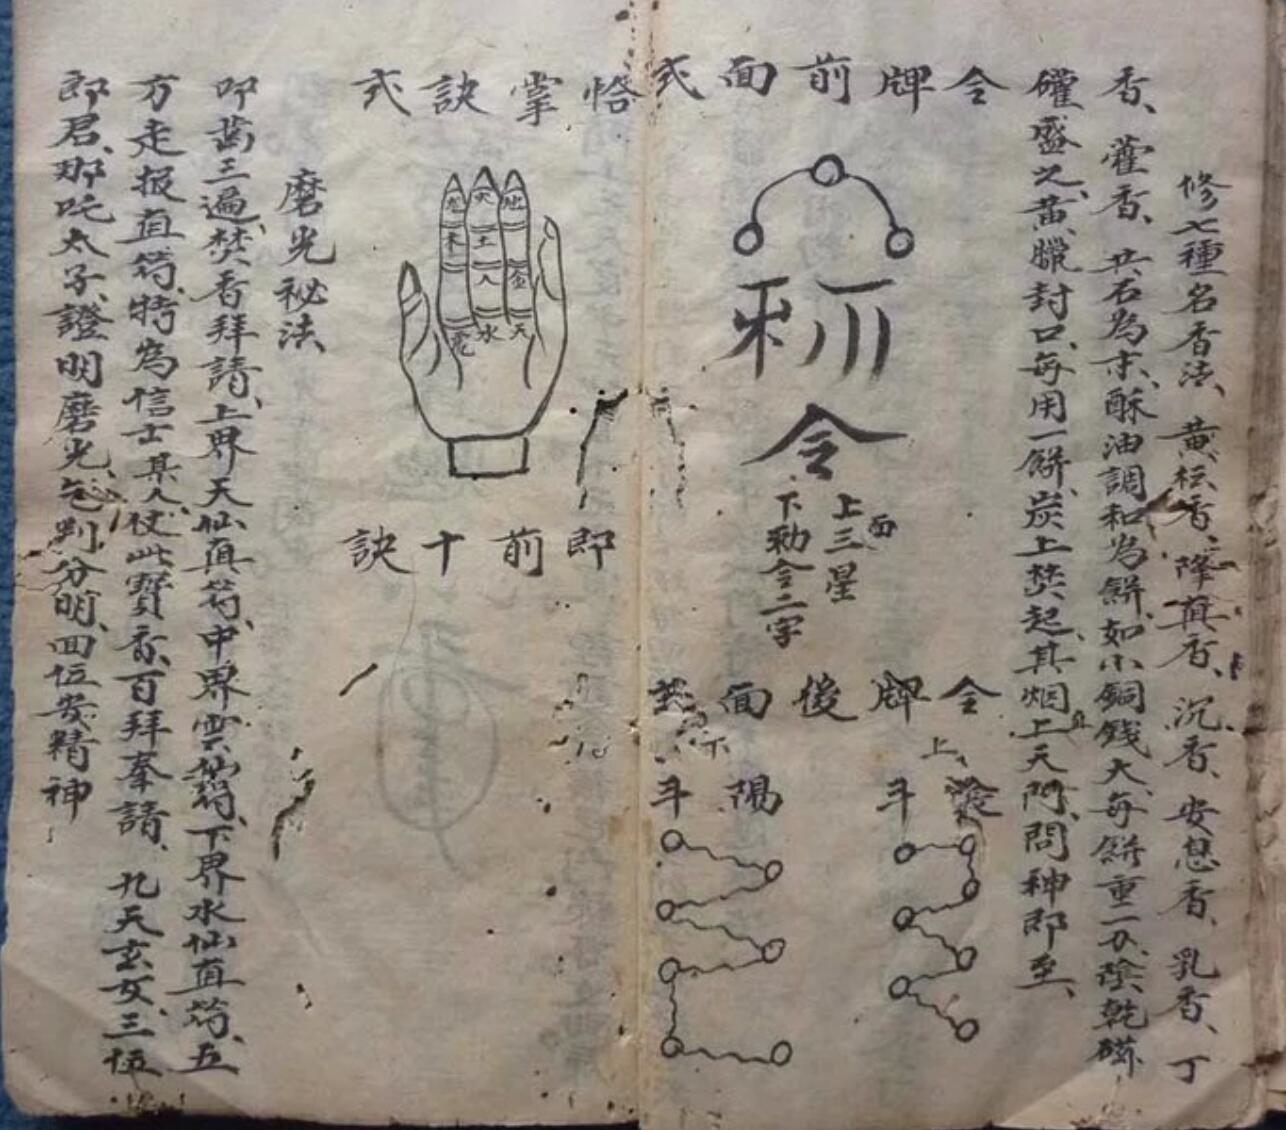 修七種名香法、黄枟香、降真香、沉香、安息香、乳香、丁
香、藿香、共石為末、酥油調和為餅、如小銅錢大、每餅重一分、陰乾磁
礶盛之、黄臘封口、每用一餅、炭上焚起、其烟上天門、問神即至、
令牌前面式
令
上三星
面
下勅令二字
令牌後面
上
斗
下
陽斗
掌訣式
地
天
木
土
人
金
水
天
即前十訣
磨光秘法
叩齒三遍、焚香拜請、上界天仙直符、中界雲仙符、下界水仙直符、五
方走报直符、特為信士某人、仗此寶香、百拜奉請、九天玄女、三伍
郎君、那吒太子、證明磨光、乞判分明、四位安精神